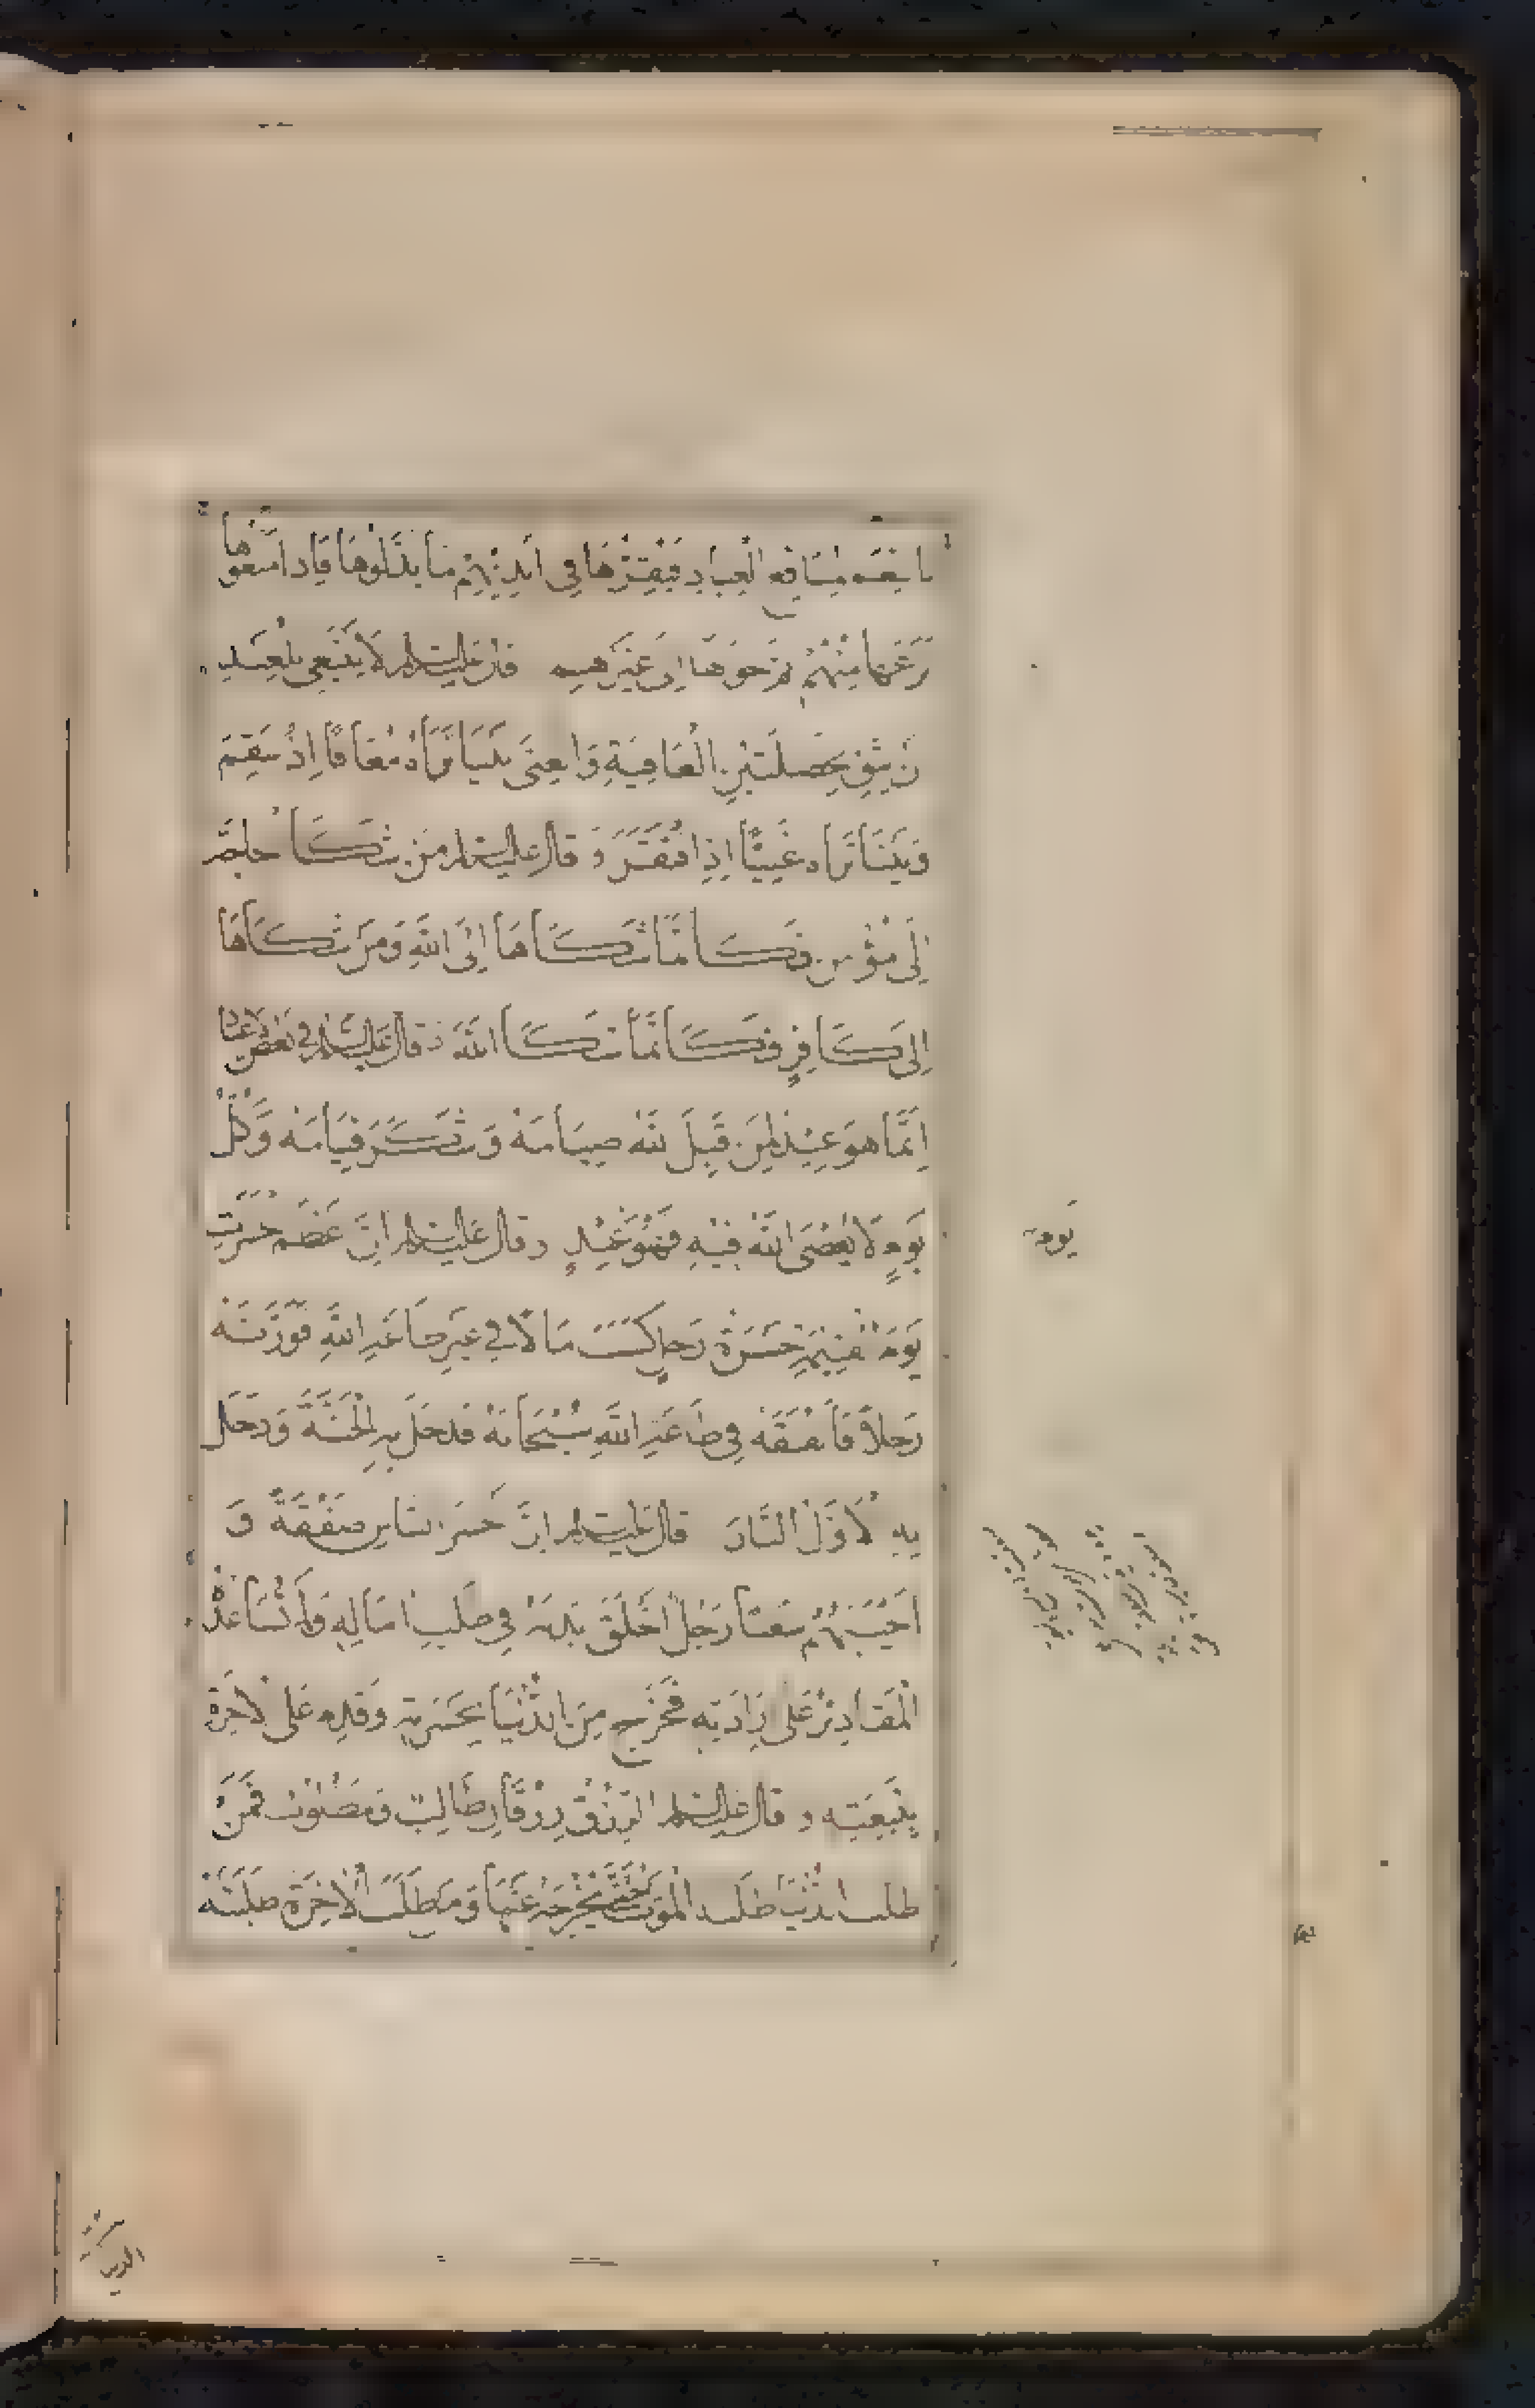 بالنعم لمنافع العباد فيقرها في أيديهم ما بذلوها فإذا منعوها
نزعها منهم ثم حولها إلى غيرهم وقال عليه السلام لا ينبغي للعبد
أن يثق بخصلتين العافية والغنى بينا تراه معافا إذ سقم
وبينا تراه غنيا إذ افتقر وقال عليه السلام من شكا الحاجة
إلى مؤمن فكأنما شكاها إلى الله ومن شكاها
إلى كافر فكأنما شكا الله وقال عليه السلام في بعض الأعياد
إنما هو عيد لمن قبل الله صيامه وشكر قيامه وكل
يوم لا يعصى الله فيه فهو عيد وقال عليه السلام إن أعظم الحسرات
يوم القيمة حسرة رجل كسب مالا في غير طاعة الله فورثه
رجلا فأنفقه في طاعة الله سبحانه فدخل به الجنة ودخل
به الأول النار وقال عليه السلام إن أخسر الناس صفقة و
أخيبهم سعيا رجل أخلق بدنه في طلب ماله ولم تساعده
المقادير على إرادته فخرج من الدنيا بحسرته وقدم على الآخرة
بتبعته وقال عليه السلام الرزق رزقان طالب ومطلوب فمن
طلب الدنيا طلبه الموت حتى يخرجه عنها ومن طلب الآخرة طلبته
يوم